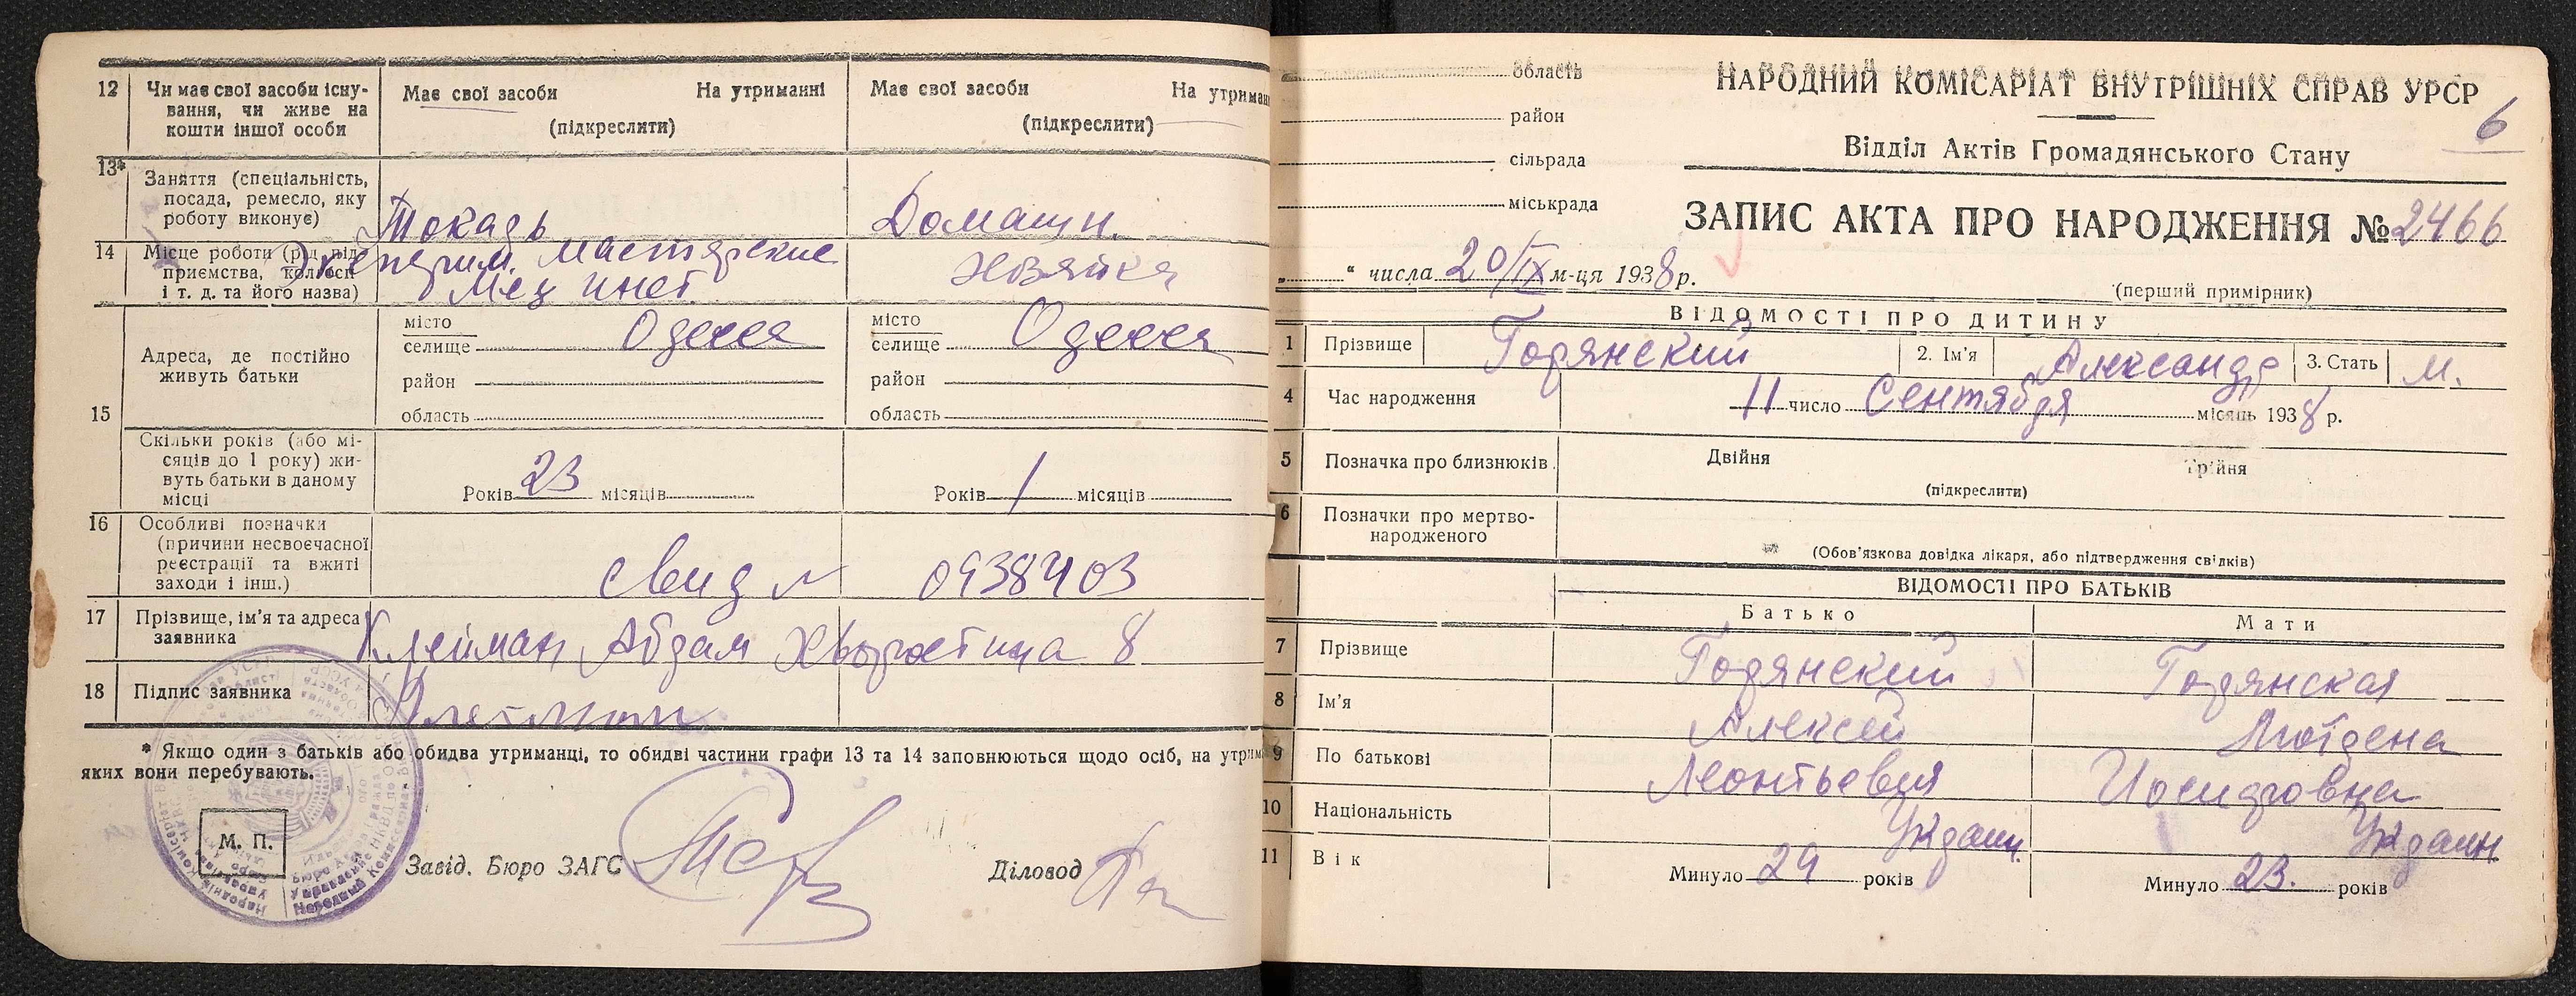 12 Чи має свої засоби існу-
вання, чи живе на
кошти іншої особи
Має свої засоби На утриманні
(підкреслити)
Має свої засоби На утриман
(підкреслити)
13*
Заняття (спеціальність,
посада, ремесло, яку
роботу виконує)
Токарь
Домашн.
14 Місце роботи (рід під-
приємства, колгосп
і т. д. та його назва)
мастерские
Мед инст.
хозяйка
15
Адреса, де постійно
живуть батьки
місто
селище Одесса
район
область
місто
селище Одесса
район
область
Скільки років (або мі-
сяців до 1 року) жи-
вуть батьки в даному
місці
Років 23 місяців
Років 1 місяців
16 Особливі позначки
(причини несвоєчасної
реєстрації та вжиті
заходи і інш.)
свид № 0938403
17 Прізвище, ім'я та адреса
заявника
Клейман Абрам 8
18 Підпис заявника
* Якщо один з батьків або обидва утриманці, то обидві частини графи 13 та 14 заповнюються щодо осіб, на утрим
яких вони перебувають.
М. П.
Завід. Бюро ЗАГС
Діловод
область
район
сільрада
міськрада
НАРОДНИЙ КОМІСАРІАТ ВНУТРІШНІХ СПРАВ УРСР
6
Відділ Актів Громадянського Стану
ЗАПИС АКТА ПРО НАРОДЖЕННЯ № 2466
„ “ числа 20/IX м-ця 1938 р.
(перший примірник)
ВІДОМОСТІ ПРО ДИТИНУ
1 Прізвище Горянский 2. Ім'я Александр 3. Стать М.
4 Час народження 11 число Сентября місяць 1938 р.
5 Позначка про близнюків Двійня Трійня
(підкреслити)
6 Позначки про мертво-
народженого
(Обов'язкова довідка лікаря, або підтвердження свідків)
ВІДОМОСТІ ПРО БАТЬКІВ
Батько Мати
7 Прізвище Горянский Горянская
8 Ім'я Алексей
9 По батькові Леонтьевич
10 Національність Украин. Украин.
11 Вік Минуло 29 років Минуло 23. років